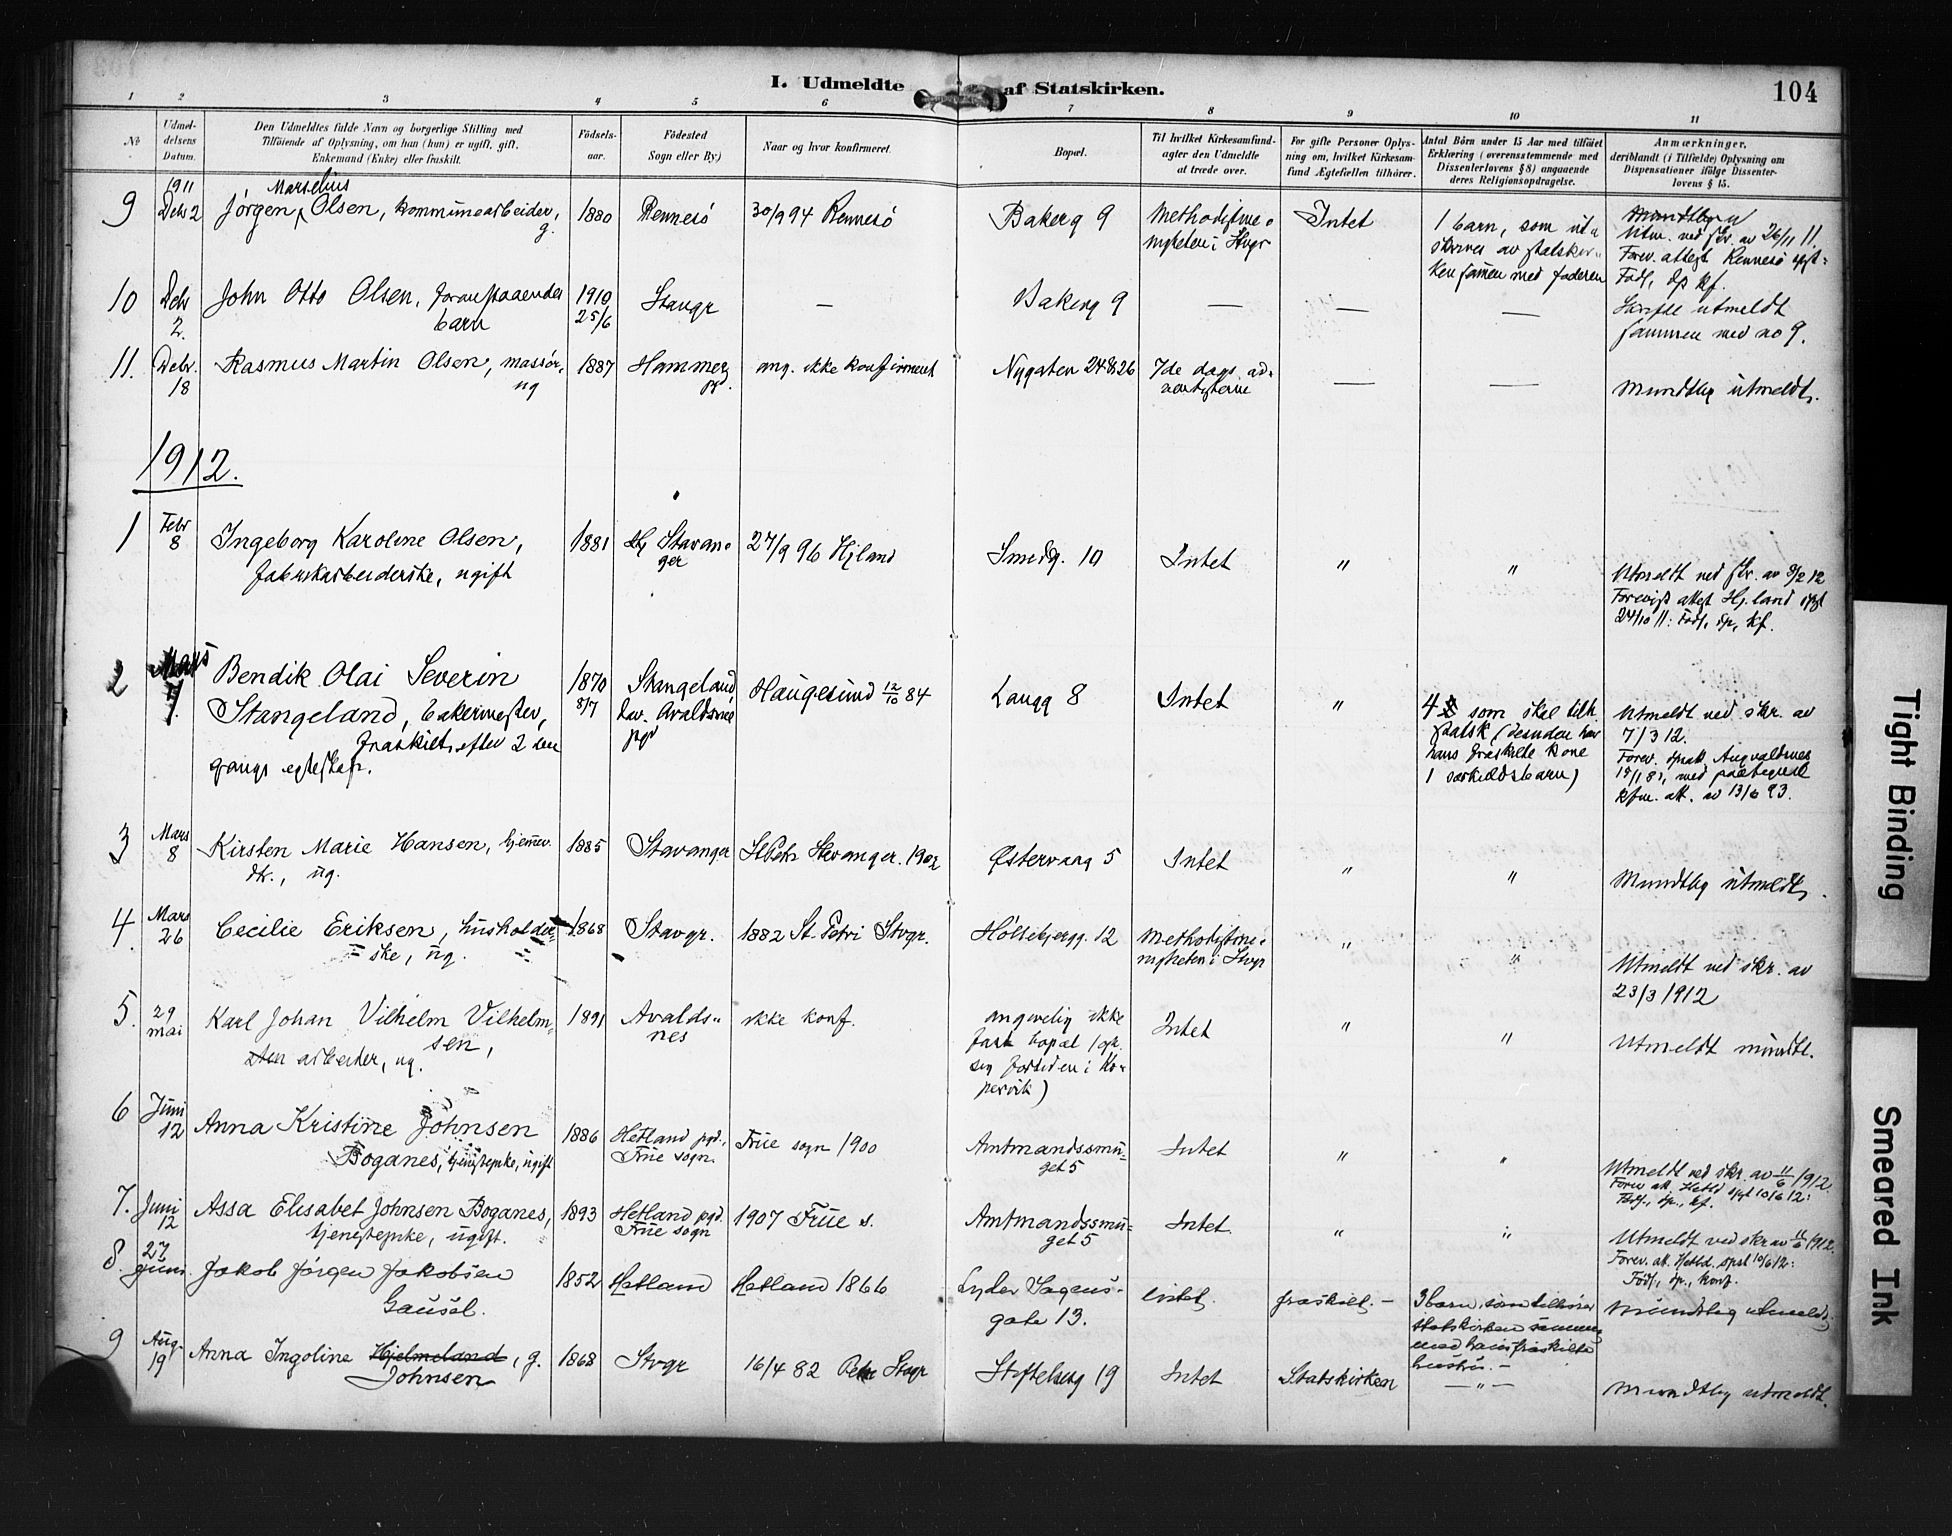 I. Udmeldte af Statskirken.
104
1 2 3 4 5 6 7 8 9 10 11
No
Udmeldelsens Datum.
Den Udmeldtes fulde Navn og borgerlige Stilling med
Tilföiende af Oplysning, om han (hun) er ugift, gift,
Enkemand (Enke) eller fraskilt.
Födselsaar.
Födested
Sogn eller By)
Naar og hvor konfirmeret.
Bopæl.
Til hvilket Kirkesamfund-
agter den Udmeldte
at træde over.
For gifte Personer Oplys-
ning om, hvilket Kirkesam-
fund Ægtefællen tilhörer.
Antal Börn under 15 Aar med tilföiet
Erklæring (overensstemmende med
Dissenterlovens § 8) angaaende
deres Religionsopdragelse.
Anmærkninger,
deriblandt (i Tilfælde) Oplysning om
Dispensationer ifölge Dissenter-
lovens § 15.
9 1911 Debr 2 Jörgen Marselius Olsen, kommunearbeider, g. 1880 Rennesö 30/9 94 Rennesö Bakerg 9 Methodistme-
nigheten i Stvgr Intet 1 barn, som ut-
skrives av statskir-
ken sammen med faderen
Utm. ved skr. av 26/11 11.
Forev. attest Rennesö
Födt, dp kf.
10 Debr 2. John Otto Olsen, foranstaaendes barn 1910 25/6 Stavgr — Bakerg 9 — — —
utmeldt
sammen med no 9.
11. Debr. 18 Rasmus Martin Olsen, massör, ug 1887 Hammer ang. ikke konfirmert Nygaten 24 & 26 7de dags ad-
ventisterne — — Mundtlig utmeldt.
1912.
1 Febr 8 Ingeborg Karoline Olsen,
fabrikarbeiderske, ugift 1881 Stavan-
ger 27/9 96 Hjland Smedg. 10 Intet " "
Utmeldt ved skr. av 8/2 12
Forevist attest Hjland
24/10 11: Födt, dp, kf.
2 Mars 7. Bendik Olai Severin
Stangeland, bakermester,
fraskilt efter 2 den
gangs egteskap. 1870 8/7 Stangeland, Avaldsnes pgd Haugesund 12/10 84 Langg 8 Intet "
4 som skal tilh.
statsk (desuden har
hans fraskilte kone
1 særkuldsbarn)
Utmeldt ved skr. av
7/3 12.
Forev. Augvaldsnes
med paategnet
kfm. att. av 13/6 93.
3 Mars 8 Kirsten Marie Hansen, hjemmev.
dtr., ug. 1885 Stavanger St Petri Stavanger. 1902 Østervaag 5 Intet " " Mundtlig utmeldt.
4. Mars 26 Cecilie Eriksen, husholder-
ske, ug. 1868 Stavgr. 1882 St. Petri Stvgr. Hölebjergg. 12 Methodistme-
nigheten i Stvgr " "
Utmeldt ved skr. av
23/3 1912
5. 29 mai Karl Johan Vilhelm Vilhelm-
sen,
arbeider, ug. 1891 Avalds-
nes ikke konf.
angivelig ikke
fast bopæl (oph.
sig for tiden i Ko-
pervik) Intet " " Utmeldt mundtl.
6 Juni 12 Anna Kristine Johnsen
Boganes, tjenestepike, ugift 1886 Hetland pgd.,
Frue sogn. Frue sogn 1900 Amtmandssmu-
get 5 Intet " "
Utmeldt ved skr. av 11/6 1912
Forev. att. Hetld spst 10/6 12:
Födt., dp., kf.
7. Juni 12 Assa Elisabet Johnsen Boganes,
tjenestepike, ugift. 1893 Hetland pgd.
Frue sogn 1907 Frue s. Amtmandssmu-
get 5 Intet. " "
Utmeldt ved skr av 11/6 1912.
Forev. att. Hetld. spst 10/6 12:
Födt., dp., konf.
8. 27 juni Jakob Jörgen Jakobsen
Gausel. 1852 Hetland Hetland 1866 Lyder Sagens-
gate 13. intet. fraskilt. —
3 barn, som tilhörer
statskirken sammen
med hans fraskilte
hustru. —
Mundtlig utmeldt.
9 Aug. 19 Anna Ingoline Hjelmeland, g.
Johnsen 1868 Stvgr 16/4 82 Petri Stavgr Stiftelsesg 19 Intet Statskirken — " — Mundtlig utmeldt.
Tight Binding
Smeared Ink